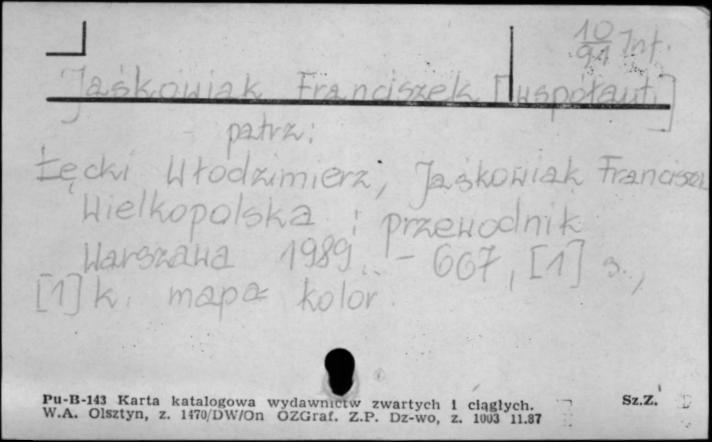 10/91 Inf.
Jaśkowiak Franciszek [współaut.]
patrz:
Łęcki Włodzimierz, Jaśkowiak Francisze
Wielkopolska : przewodnik
Warszawa 1989. - 667, [1] s.,
[1] k. mapa kolor.
Pu-B-143 Karta katalogowa wydawnictw zwartych i ciągłych. Sz.Z.
W.A. Olsztyn, z. 1470/DW/On OZGraf. Z.P. Dz-wo, z. 1003 11.87